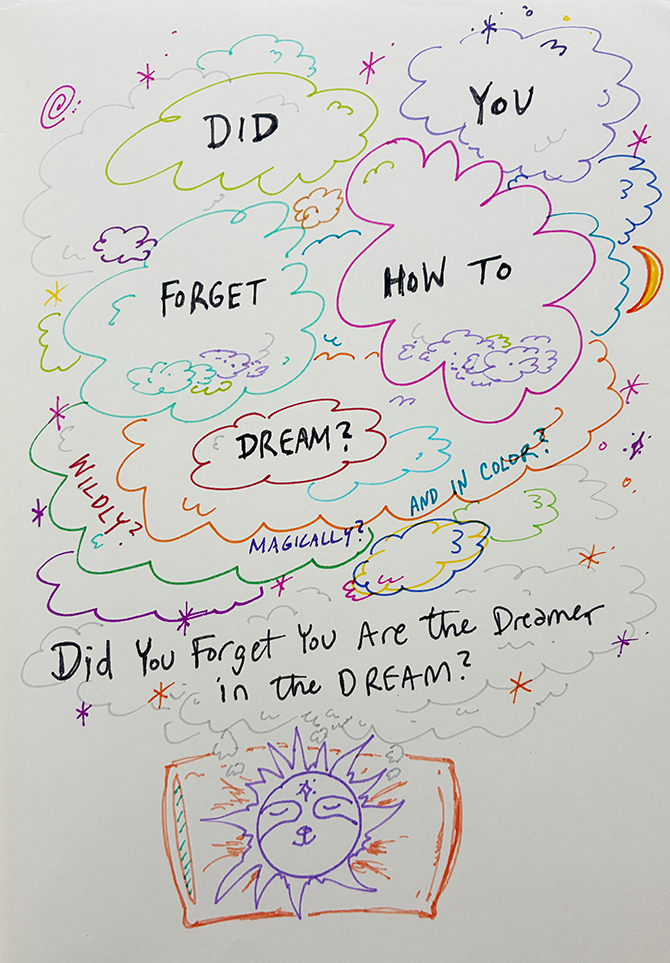 DID
YOU
FORGET
HOW TO
DREAM?
WILDLY?
MAGICALLY?
AND IN COLOR?
Did You Forget You Are the Dreamer
in the DREAM?